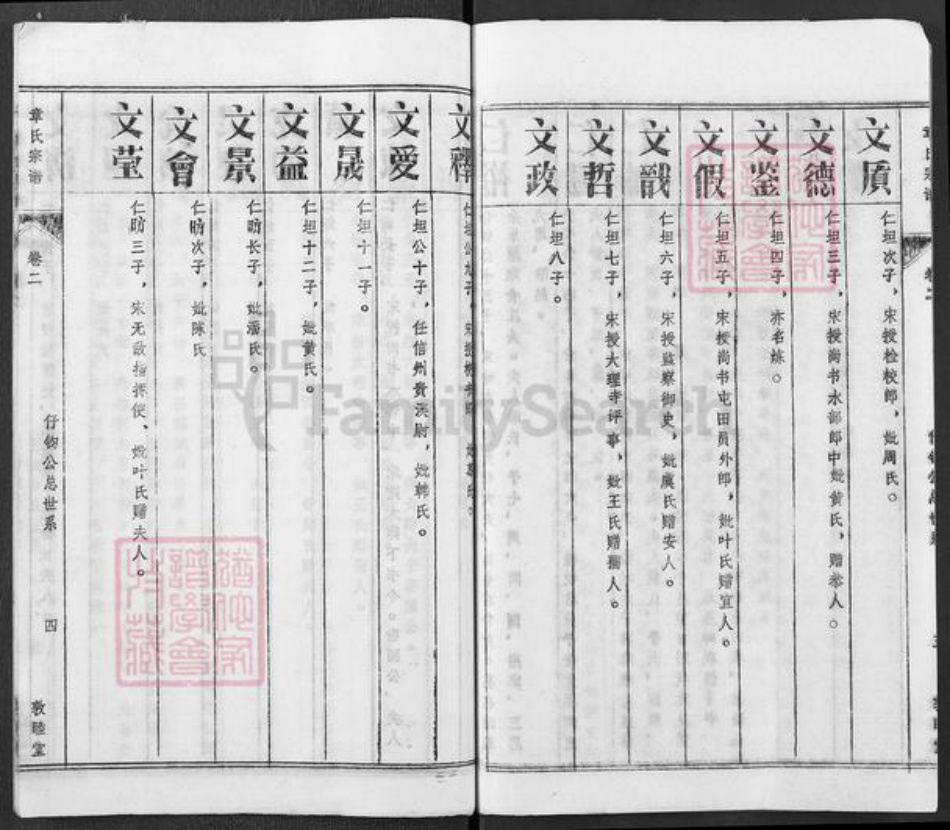 文頎
仁坦次子，宋授检校郎，妣周氏。
文德
仁坦三子，宋授尚书水部郎中妣黄氏，赠恭人。
文鉴
仁坦四子，亦名炼。
文假
仁坦五子，宋授尚书屯田员外郎，妣叶氏赠宜人。
文戬
仁坦六子，宋授监察御史，妣虞氏赠安人。
文哲
仁坦七子，宋授大理寺评事，妣王氏赠孺人。
文政
仁坦八子。
文
仁坦公九子，宋授
文愛
仁坦公十子，任信州贵溪尉，妣韩氏。
文晟
仁坦十一子。
文益
仁坦十二子，妣黄氏。
文景
仁昉长子，妣潘氏。
文會
仁昉次子，妣陈氏
文莹
仁昉三子，宋无敌指挥使、妣叶氏赠夫人。
章氏宗谱
卷二
仔钧公总世系
四
敦睦堂
FamilySearch